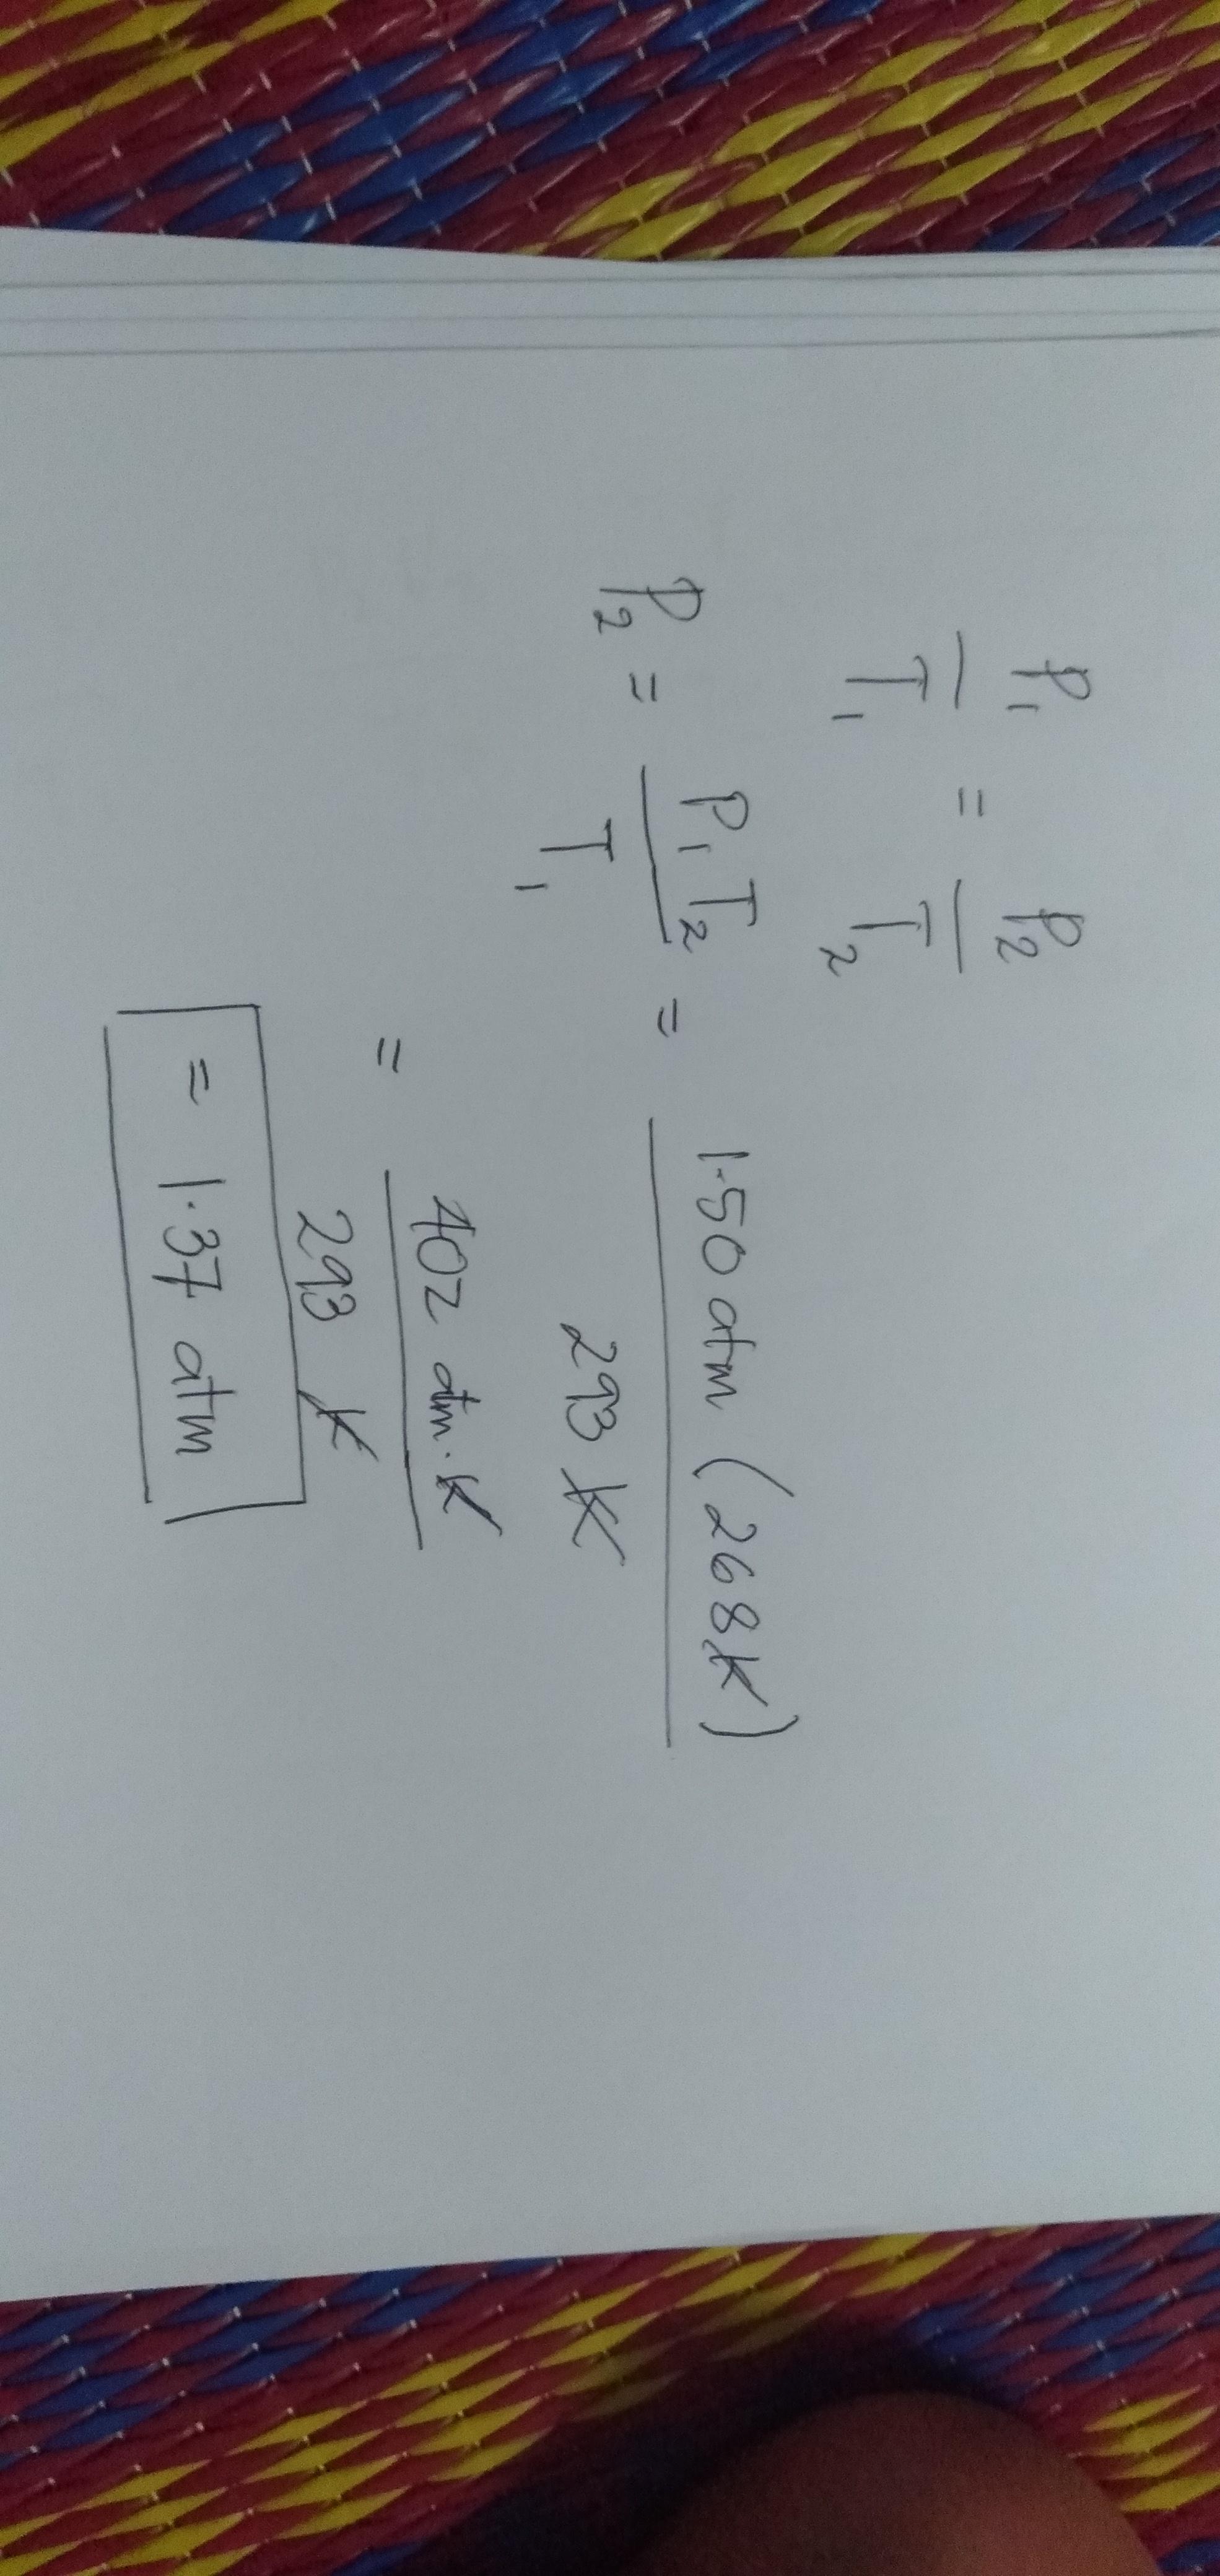 P₁/T₁ = P₂/T₂
P₂ = P₁T₂/T₁ = 1.50 atm (268K)/293 K
= 402 atm·K/293 K
= 1.37 atm